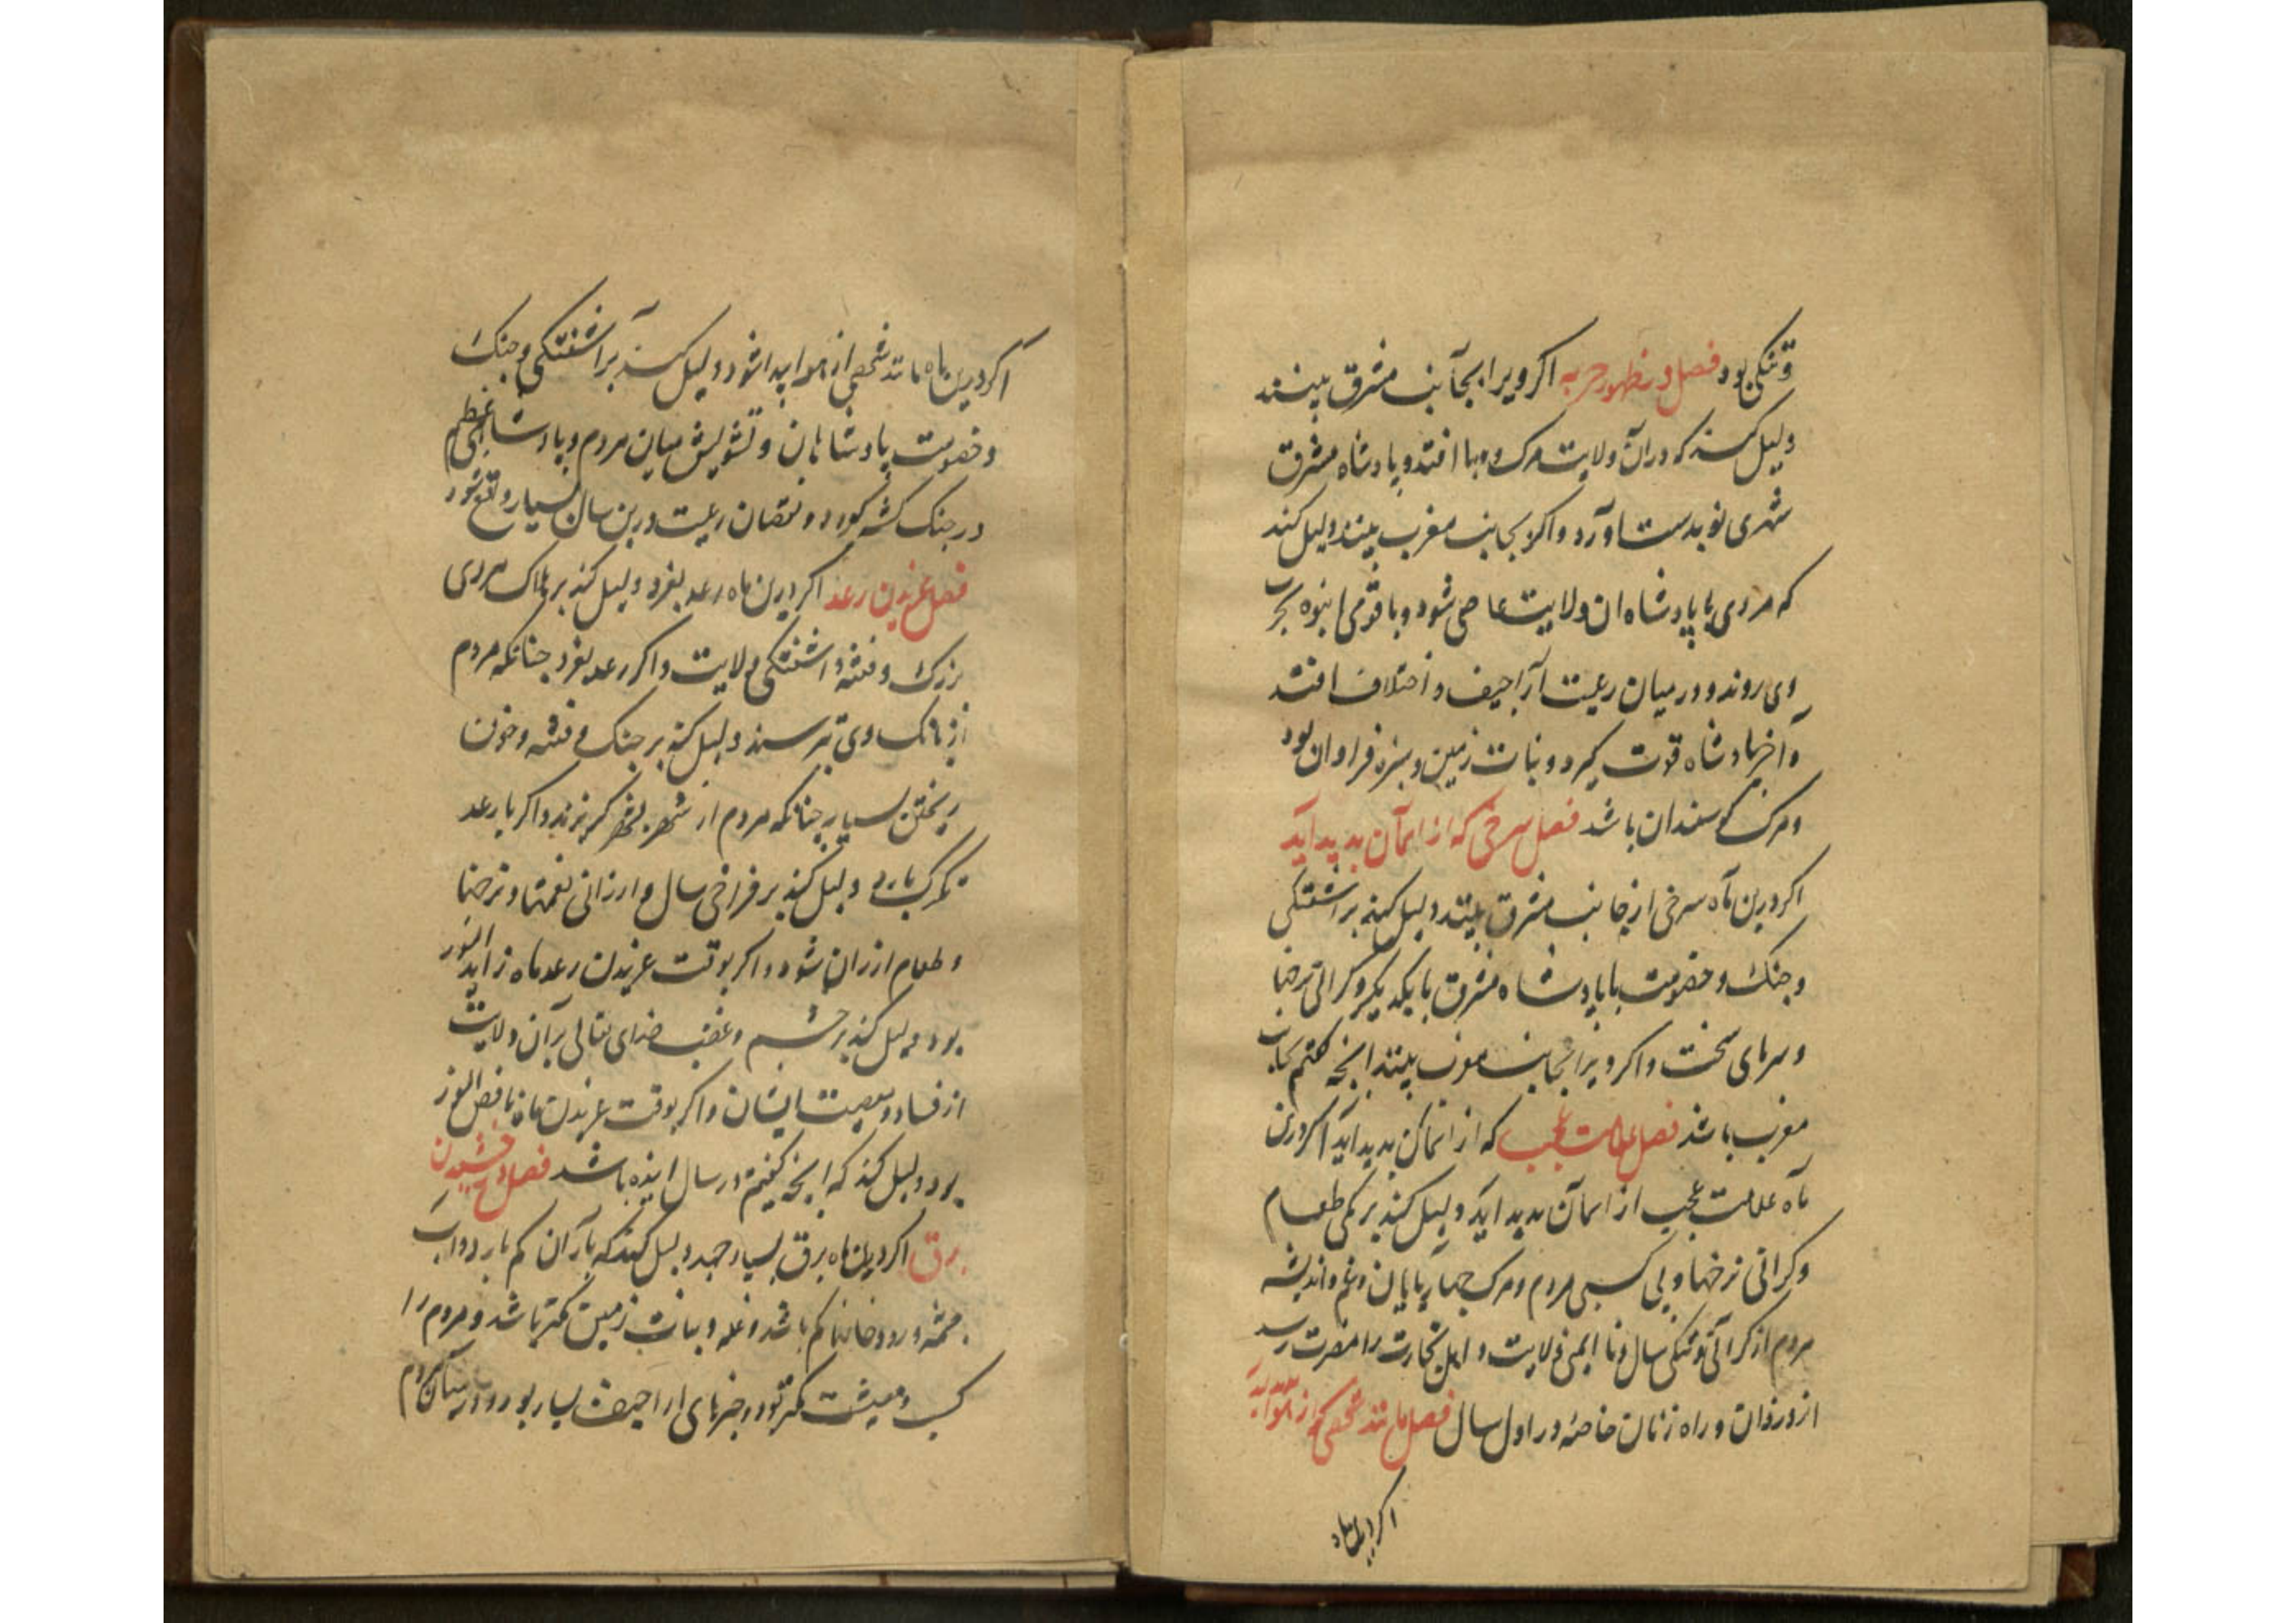 و تنکی بود فصل در ظهور حربه اکر ویرا بجانب مشرق بینند
دلیل کند که در ان ولایت مرک و وبا افتد و پادشاه مشرق
شهری نو بدست اورد و اکر بجانب مغرب بینند دلیل کند
که مردی با پادشاه ان ولایت عاصی شود و با قومی انبوه بحرب
وی روند و در میان رعیت اراجیف و اختلاف افتد
و آخر پادشاه قوت کیرد و نبات زمین و سبزه فراوان بود
و مرک کوسفندان باشد فصل سرخی که از اسمان بدید آید
اکر درین ماه سرخی از جانب مشرق بینند دلیل کند بر اشفتکی
و جنک و خصومت با پادشاه مشرق با یکدیکر و کرانی نرخها
و سرمای سخت و اکر ویرا بجانب مغرب بینند انچه کفتم بجانب
مغرب باشد فصل علامت عجیب که از اسمان بدید اید اکر درین
ماه علامت عجیب از اسمان بدید اید دلیل کند بر کمی طعام
و کرانی نرخها و بی کسبی مردم و مرک چهارپایان و غم و اندیشه
مردم از کرانی و تنکی سال و نا ایمنی ولایت و اهل تجارت را مضرت رسد
از دزدان و راه زنان خاصه در اول سال فصل مانند شخصی که از هوا آید
اکر درین ماه
اکر درین ماه مانند شخصی از هوا پیدا شود دلیل کند بر اشفتکی و جنک
و خصومت پادشاهان و تشویش میان مردم و پادشاهی عظیم
در جنک کشته کردد و نقصان رعیت درین سال بسیار واقع شود
فصل غریدن رعد اکر درین ماه رعد بغرد دلیل کند بر هلاک مردی
بزرک و فتنه و اشفتکی ولایت و اکر رعد بغرد چنانکه مردم
از بانک وی بترسند دلیل کند بر جنک و فتنه و خون
ریختن بسیار چنانکه مردم از شهر بشهر کریزند و اکر با رعد
تکرک بارد دلیل کند بر فراخی سال و ارزانی نعمتها و نرخها
و طعام ارزان شود و اکر بوقت غریدن رعد ماه زاید النور
بود دلیل کند بر خشم و غضب خدای تعالی بر آن ولایت
از فساد و معصیت ایشان و اکر بوقت غریدن ماه ناقص النور
بود دلیل کند که انچه کفتیم در سال اینده باشد فصل درخشیدن
برق اکر درین ماه برق بسیار جهد دلیل کند که باران کم بارد و اب
چشمه و رودخانها کم باشد و غله و نبات زمین کمتر باشد و مردم را
کسب و معیشت کمتر بود و خبرهای اراجیف بسیار بود و در میان مردم